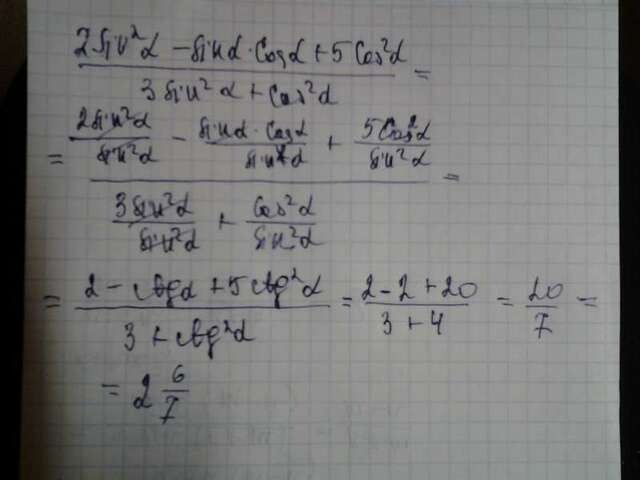 2sin²α - sinα·cosα + 5cos²α
=
3sin²α + cos²α
= 2sin²α/sin²α - sinα·cosα/sin²α + 5cos²α/sin²α
=
3sin²α/sin²α + cos²α/sin²α
= (2 - ctgα + 5ctg²α)/(3 + ctg²α) = (2 - 2 + 20)/(3 + 4) = 20/7 =
= 2 6/7